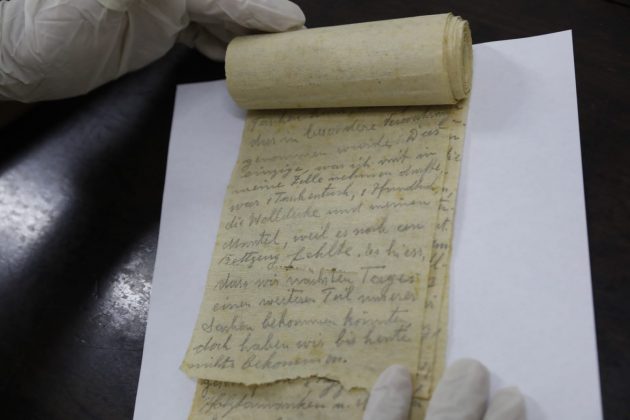 das in besondere Verwahrung
genommen wurde. Das
einzige, was ich mit in
meine Zelle nehmen durfte,
war 1 Taschentuch, 1 Handtuch,
die Wolldecke und meinen
Mantel, weil es noch an
Bettzeug fehlte. Es hiess,
dass wir nächsten Tages
einen weiteren Teil unserer
Sachen bekommen könnten,
doch haben wir bis heute
nichts bekommen.